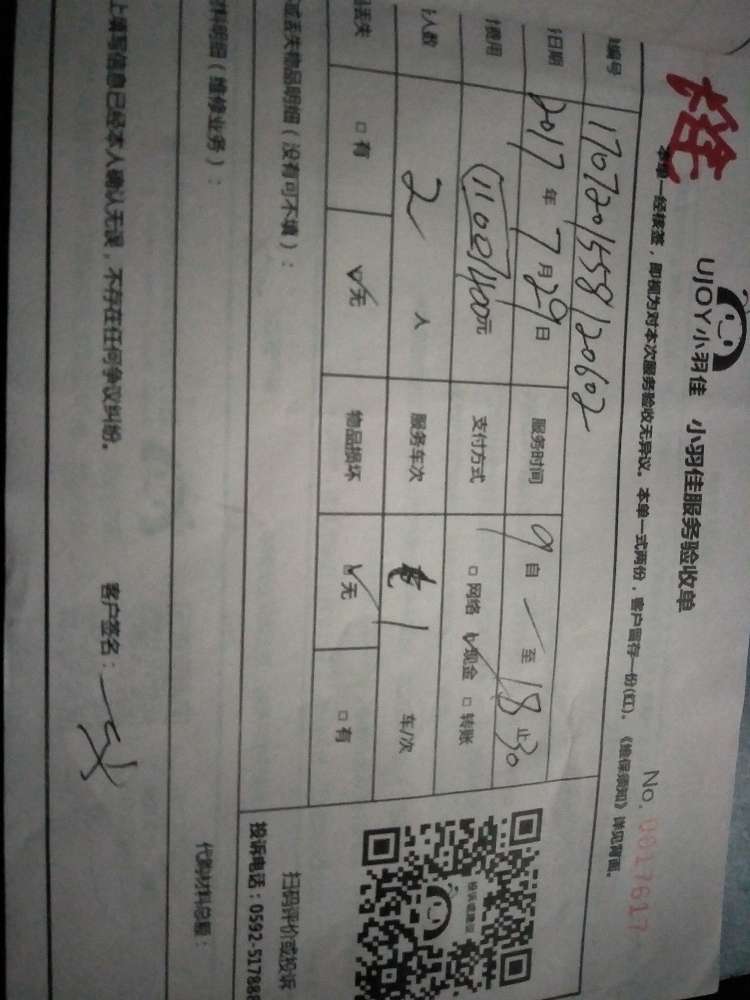 UJOY小羽佳 小羽佳服务验收单
No. 0017617
本单一经核签，即视为对本次服务验收无异议。本单一式两份，客户留存一份(红)。《维保须知》详见背面。
编号 1707201558120602
日期 2017年7月29日 服务时间 9自 至18止30
费用 1100/400元 支付方式 □网络 ☑现金 □转账
人数 2人 服务车次 1 车/次
丢失 □有 ☑无 物品损坏 ☑无 □有
或丢失物品明细（没有可不填）：
扫码评价或投诉
投诉电话：0592-517888
材料明细（维修业务）：
代购材料总额：
上填写信息已经本人确认无误，不存在任何争议纠纷。 客户签名：